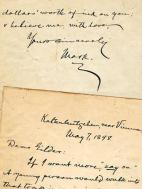 dollars' worth of ink on you:
& believe me, with love,
Yours sincerely
Mark.
Kaltenleutgeben, near Vienna
May 7, 1898
Dear Gilder:
If I want more, say on a